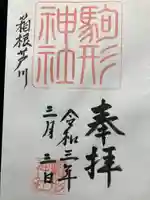 奉拝
駒形
神社
令和三年
三月三日
箱根芦川